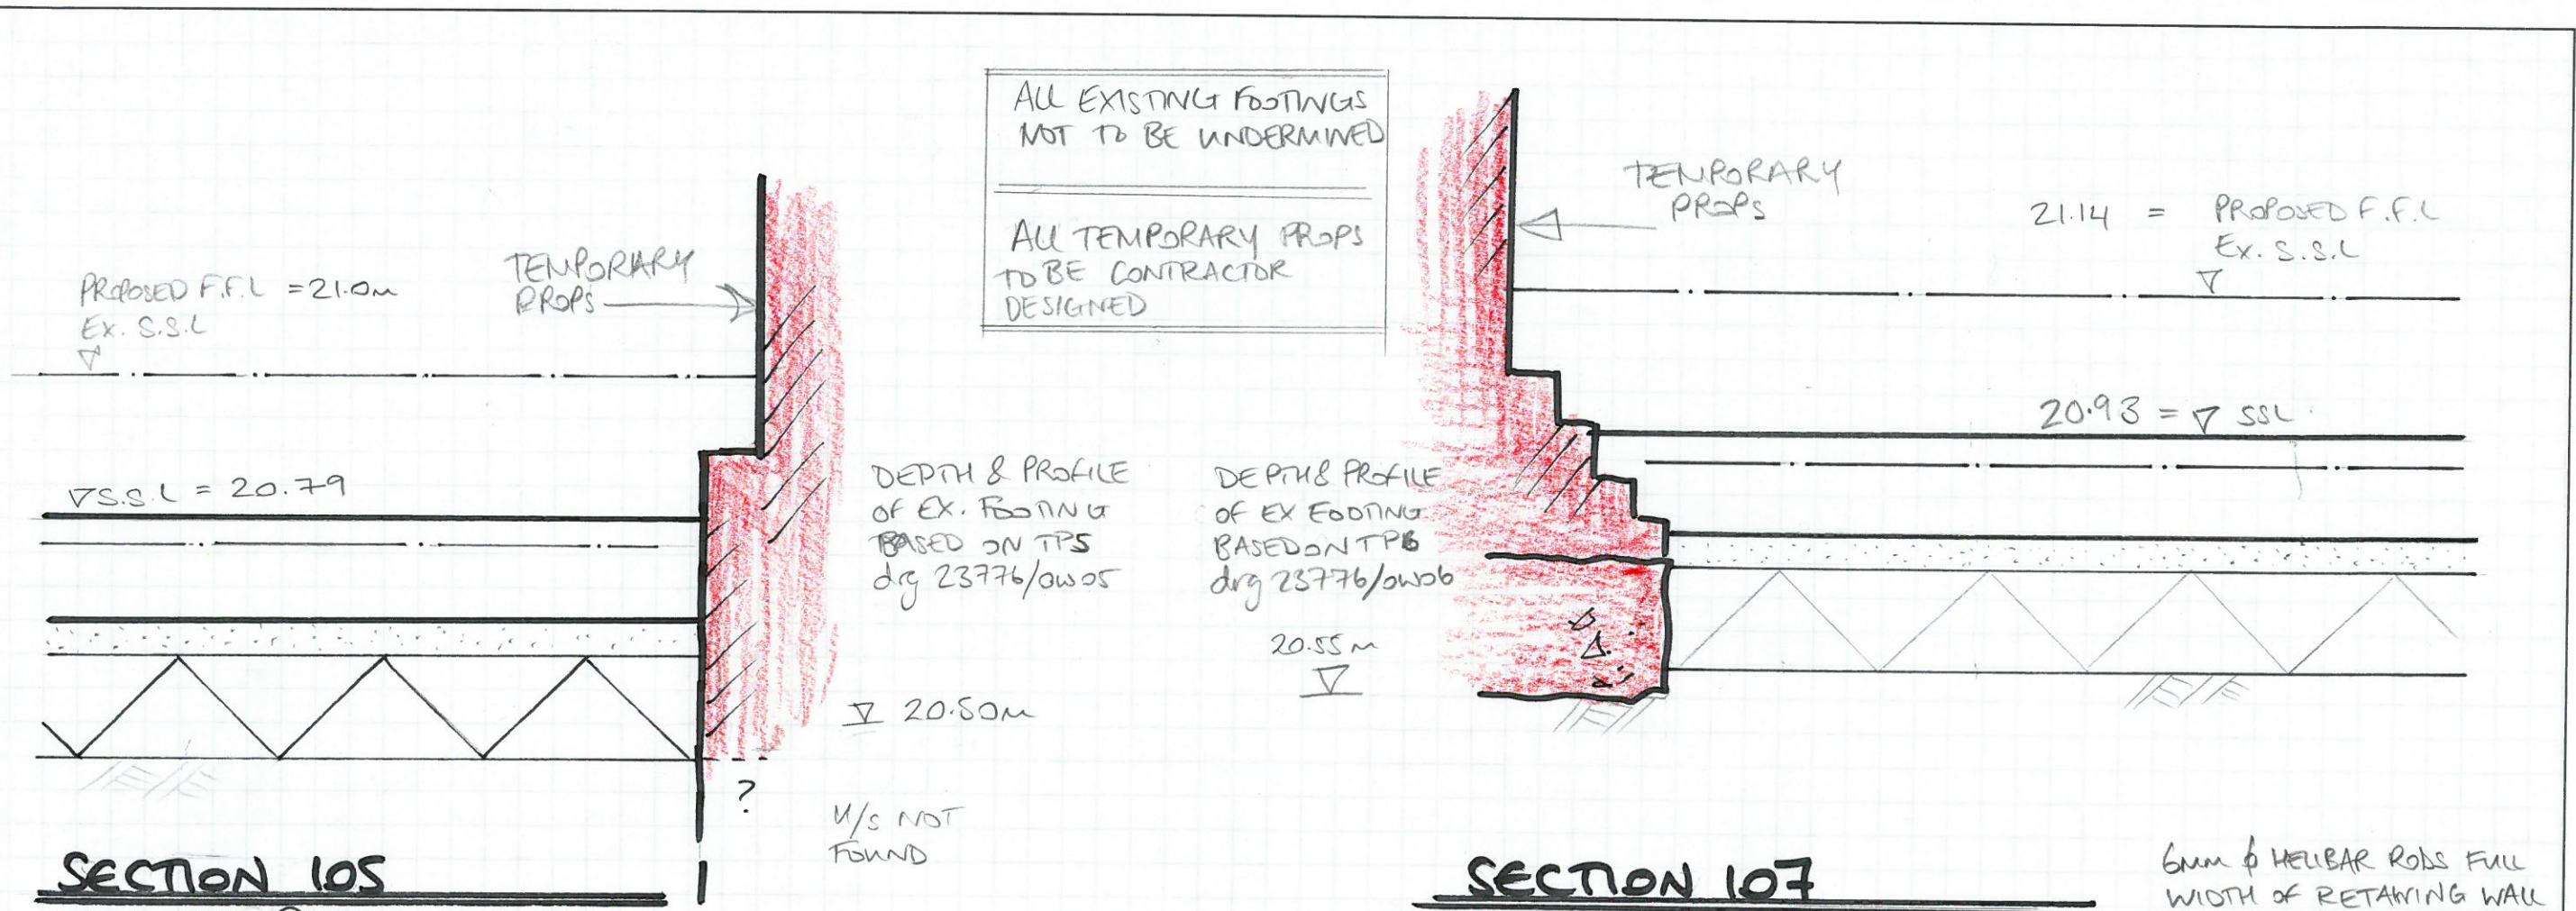 ALL EXISTING FOOTINGS
NOT TO BE UNDERMINED
ALL TEMPORARY PROPS
TO BE CONTRACTOR
DESIGNED
PROPOSED F.F.L = 21.0m
Ex. S.S.L
TEMPORARY
PROPS
S.S.L = 20.79
DEPTH & PROFILE
OF EX. FOOTING
BASED ON TP5
drg 23776/OW05
20.50m
?
U/S NOT
FOUND
SECTION 105
TEMPORARY
PROPS
21.14 = PROPOSED F.F.L
Ex. S.S.L
20.93 = SSL
DEPTH & PROFILE
OF EX FOOTING
BASED ON TP6
drg 23776/OW06
20.55m
SECTION 107
6mm ϕ HELIBAR RODS FULL
WIDTH OF RETAINING WALL